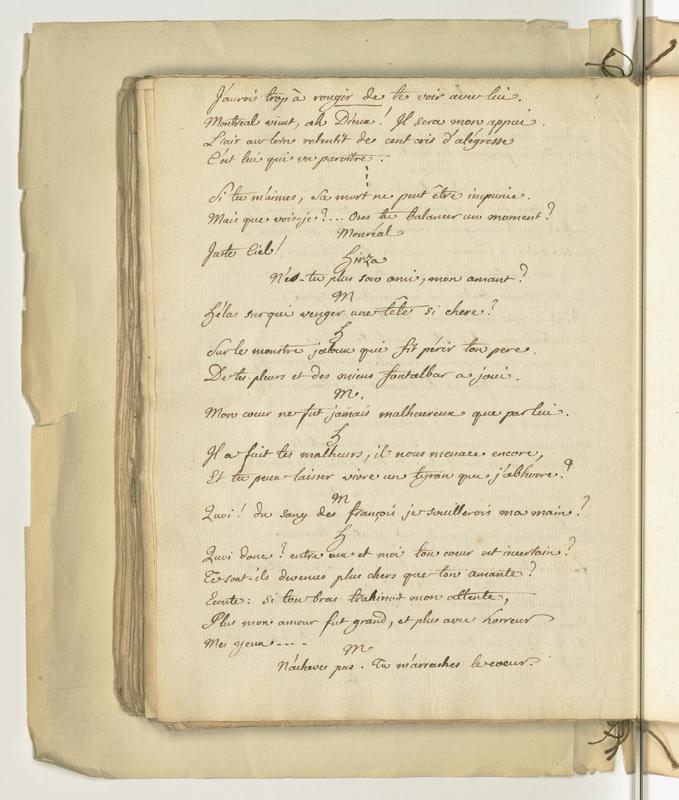 J'aurois trop à rougir de te voir avec lui.
Montréal vient, ah Dieux! Il sera mon appui.
L'air au loin retentit de cent cris d'alégresse
C'est lui qui va paroitre.
Si tu m'aimes, sa mort ne peut être impunie.
Mais que vois-je?... Oses tu balancer un moment?
Monréal
Juste Ciel!
Hirza
N'es-tu plus son ami, mon amant?
M
hélas sur qui venger une tête si chere?
h
Sur le monstre jaloux qui fit périr ton pere.
De tes pleurs et des miens fontalbar a joui.
M.
Mon coeur ne fut jamais malheureux que par lui.
h
Il a fait tes malheurs, il nous menace encore,
Et tu peux laisser vivre un tyran que j'abhorre?
M
Quoi! du sang des françois je souillerois ma main?
h
Quoi donc? entre eux et moi ton coeur est incertain?
Te sont-ils devenus plus chers que ton amante?
Ecoute: si ton bras trahissoit mon attente,
Plus mon amour fut grand, et plus avec horreur
Mes yeux ----
M
N'acheves pas. Tu m'arraches le coeur.